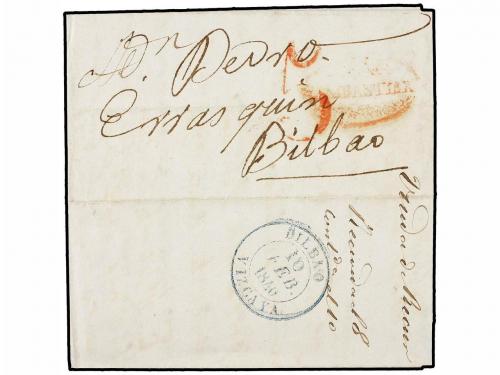 Dn. Pedro
Errasquin
Bilbao
BILBAO
10
FEB.
1846
VIZCAYA
Viuda de
Recivida el 8
Contdª el 10